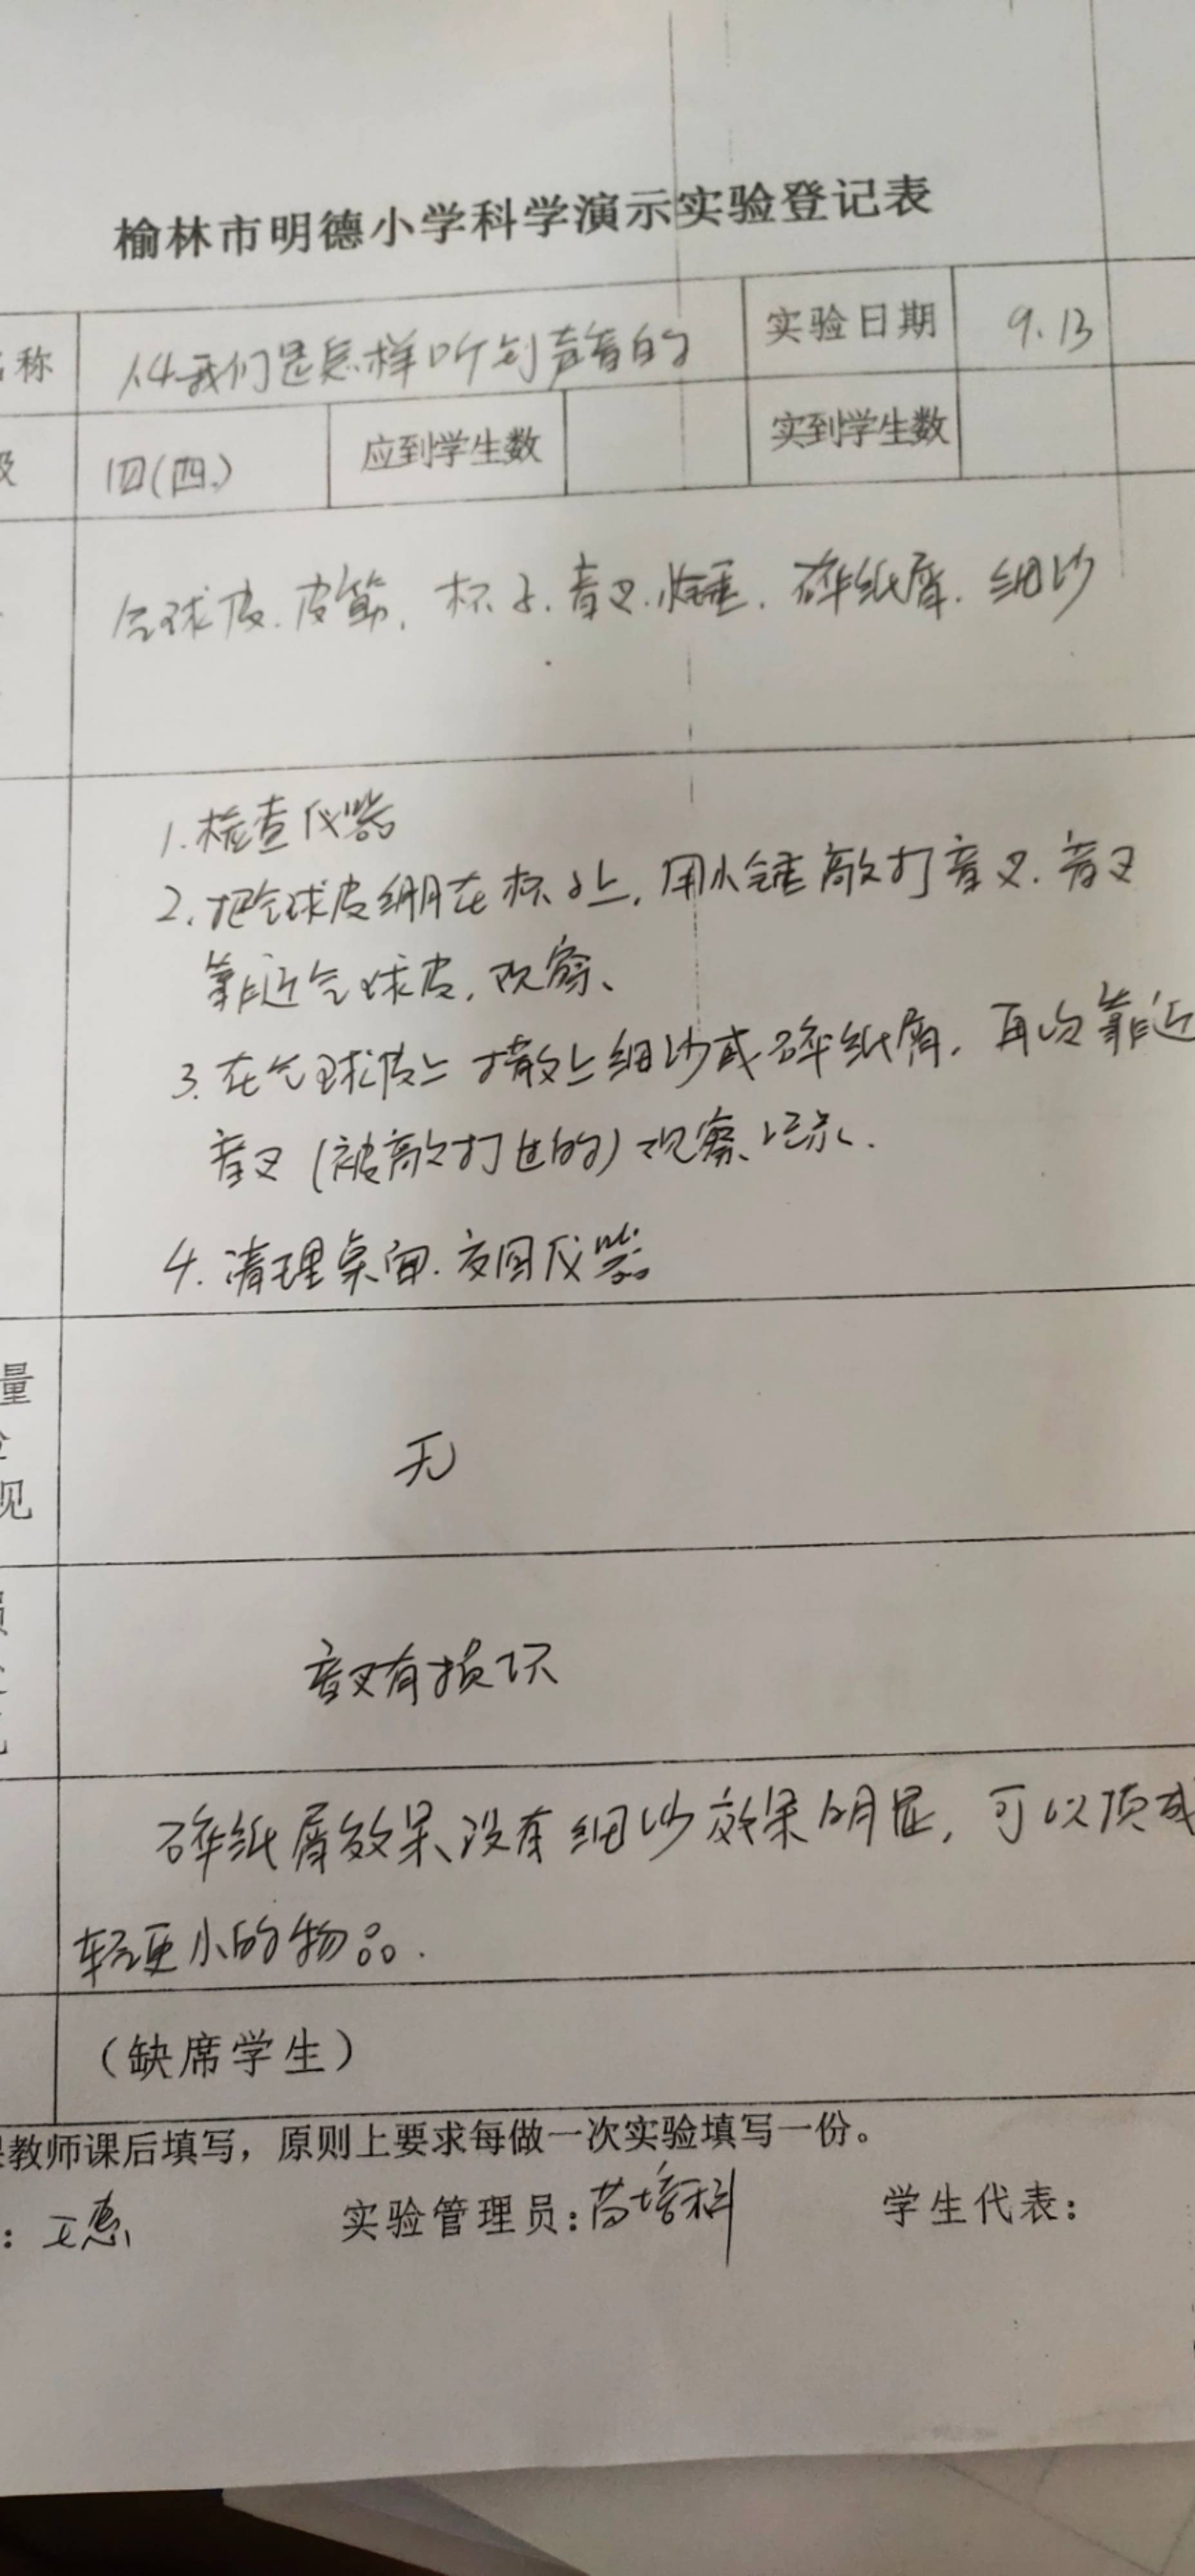 榆林市明德小学科学演示实验登记表
名称 1.4我们是怎样听到声音的 实验日期 9.13
级 四(四) 应到学生数 实到学生数
气球皮.皮筋.杯子.音叉.小锤.碎纸屑.细沙
1.检查仪器
2.把气球皮绷在杯子上,用小锤敲打音叉.音叉
靠近气球皮,观察、
3.在气球皮上撒上细沙或碎纸屑,再次靠近
音叉(被敲打过的)观察、记录.
4.清理桌面.交回仪器
量
见
无
音叉有损坏
碎纸屑效果没有细沙效果明显,可以换成
轻更小的物品.
(缺席学生)
教师课后填写,原则上要求每做一次实验填写一份。
: 王惠 实验管理员: 培科 学生代表: